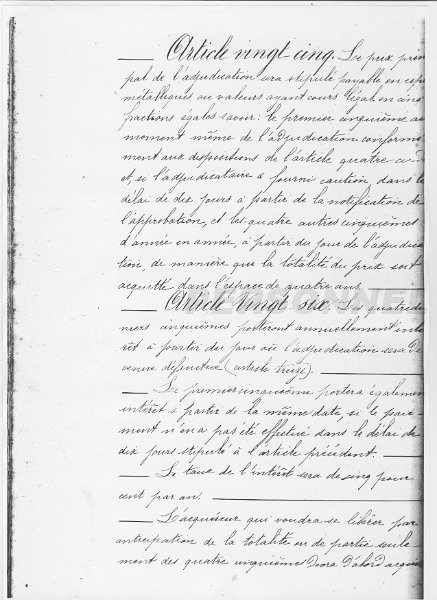 Article vingt cinq. Le prix prin
pal de l'adjudication sera stipulé payable en esp
métalliques ou valeurs ayant cours légal en cinq
fractions égales savoir: le premier cinquième au
moment même de l'adjudication conformé
ment aux dispositions de l'article quatre
et, si l'adjudicataire a fourni caution, dans le
délai de dix jours à partir de la notification de
l'approbation, et les quatre autres cinquièmes
d'année en année, à partir du jour de l'adjudica
tion, de manière que la totalité du prix soit
acquittée dans l'espace de quatre ans.
Article vingt six. Les quatre der
niers cinquièmes porteront annuellement inté
rêt à partir du jour où l'adjudication sera de
venue définitive (article treize).
Le premier cinquième portera égalemen
intérêt à partir de la même date, si le paie
ment n'en a pas été effectué dans le délai de
dix jours stipulé à l'article précédent.
Le taux de l'intérêt sera de cinq pour
cent par an.
L'acquéreur qui voudra se libérer par
anticipation de la totalité ou de partie seule
ment des quatre cinquièmes devra d'abord